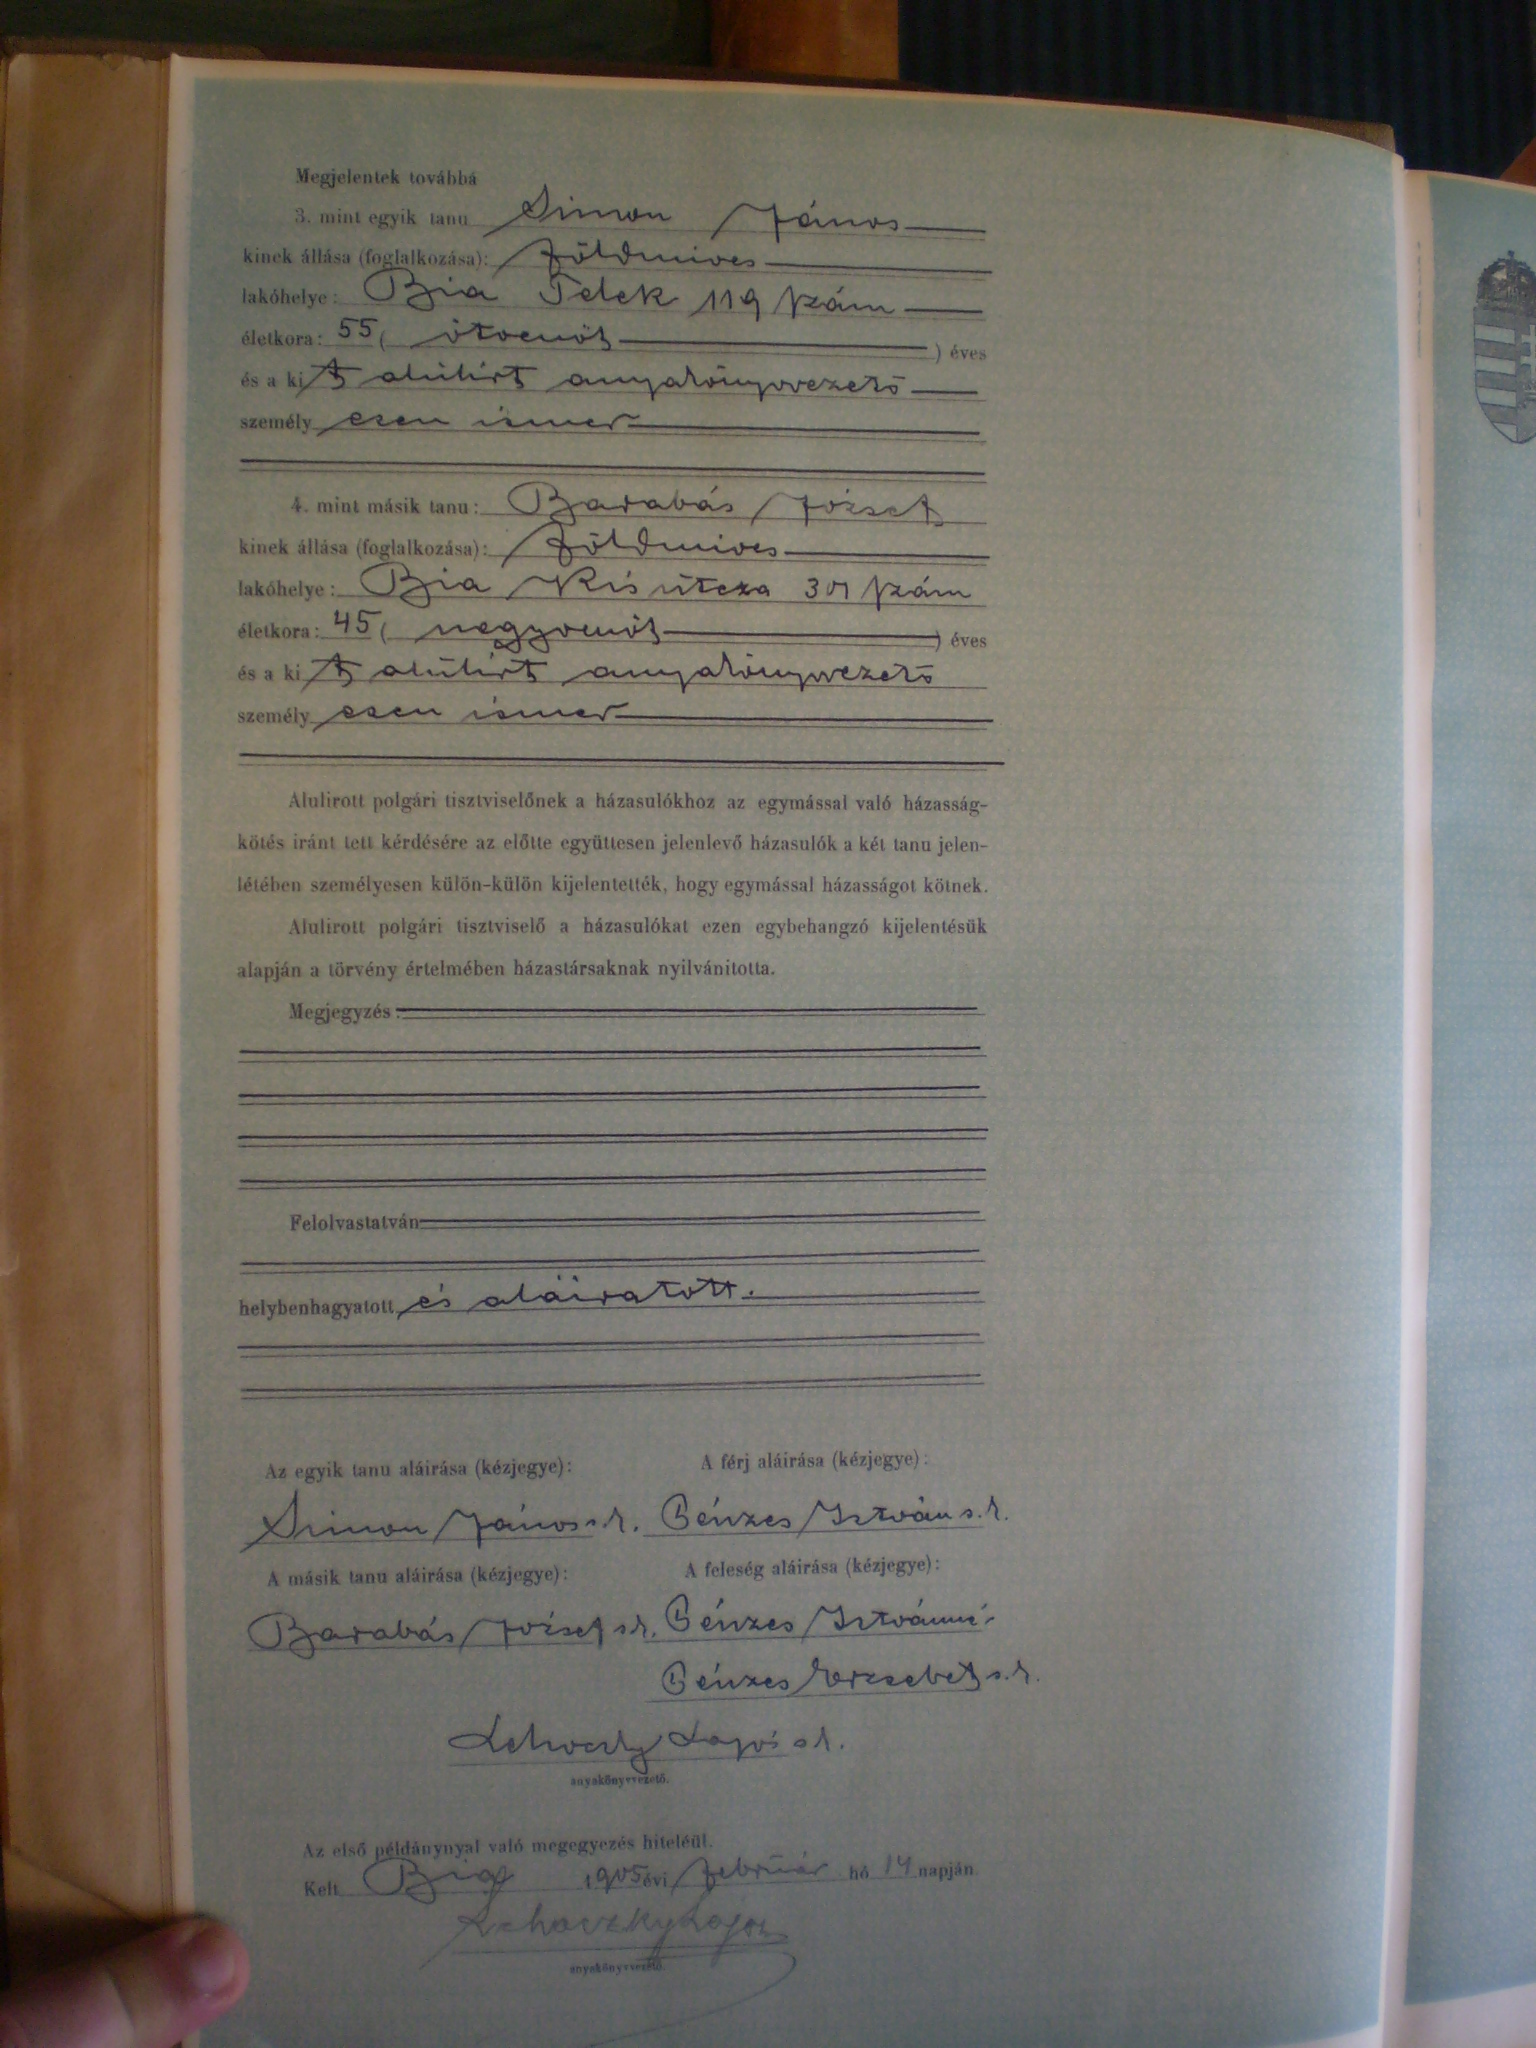 Megjelentek továbbá
3. mint egyik tanu Simon János
kinek állása (foglalkozása): földmives
lakóhelye: Bia Telek 119 szám
életkora: 55 ( ötvenöt ) éves
és a kit alúlirt anyakönyvvezető
személy esen ismer
4. mint másik tanu: Barabás József
kinek állása (foglalkozása): földmives
lakóhelye: Bia Kis útcza 301 szám
életkora: 45 ( negyvenöt ) éves
és a kit alúlirt anyakönyvvezető
személy esen ismer
Alulirott polgári tisztviselőnek a házasulókhoz az egymással való házasság-
kötés iránt tett kérdésére az előtte együttesen jelenlevő házasulók a két tanu jelen-
létében személyesen külön-külön kijelentették, hogy egymással házasságot kötnek.
Alulirott polgári tisztviselő a házasulókat ezen egybehangzó kijelentésük
alapján a törvény értelmében házastársaknak nyilvánitotta.
Megjegyzés:
Felolvastatván
helybenhagyatott és aláiratott.
Az egyik tanu aláirása (kézjegye): A férj aláirása (kézjegye):
Simon János s. k. Pénzes István s. k.
A másik tanu aláirása (kézjegye): A feleség aláirása (kézjegye):
Barabás József s k. Pénzes Istvánné
Pénzes Erzsebet s. k.
Lehoczky Lajos s k.
anyakönyvvezető.
Az első példánynyal való megegyezés hiteléül.
Kelt Bia 1905 évi február hó 14 napján.
Lehoczky Lajos
anyakönyvvezető.